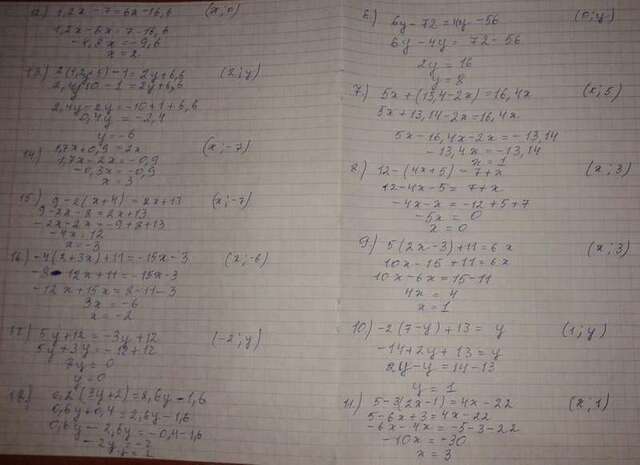 12) 1,2x-7=6x-16,6 (x;0)
1,2x-6x=7-16,6
-4,8x=-9,6
x=2
13) 2(1,2y-5)-1=2y+6,6 (2;y)
2,4y-10-1=2y+6,6
2,4y-2y=-10+1+6,6
0,4y=-2,4
y=-6
14) 1,7x+0,9=2x (x;-7)
1,7x-2x=-0,9
-0,3x=-0,9
x=3
15) 9-2(x+4)=2x+13 (x;-7)
9-2x-8=2x+13
-2x-2x=-9+8+13
-4x=12
x=-3
16) -4(2+3x)+11=-15x-3 (x;-6)
-8-12x+11=-15x-3
-12x+15x=8-11-3
3x=-6
x=-2
17) 5y+12=-3y+12 (-2;y)
5y+3y=-12+12
8y=0
y=0
18) 0,2(3y+2)=2,6y-1,6
0,6y+0,4=2,6y-1,6
0,6y-2,6y=-0,4-1,6
-2y=-2
y=1
6) 6y-72=4y-56 (0;y)
6y-4y=72-56
2y=16
y=8
7) 5x+(13,4-2x)=16,4x (x;5)
5x+13,14-2x=16,4x
5x-16,4x-2x=-13,14
-13,4x=-13,14
x=1
8) 12-(4x+5)=7+x (x;3)
12-4x-5=7+x
-4x-x=-12+5+7
-5x=0
x=0
9) 5(2x-3)+11=6x (x;3)
10x-15+11=6x
10x-6x=15-11
4x=4
x=1
10) -2(7-y)+13=y (1;y)
-14+2y+13=y
2y-y=14-13
y=1
11) 5-3(2x-1)=4x-22 (x;1)
5-6x+3=4x-22
-6x-4x=-5-3-22
-10x=-30
x=3